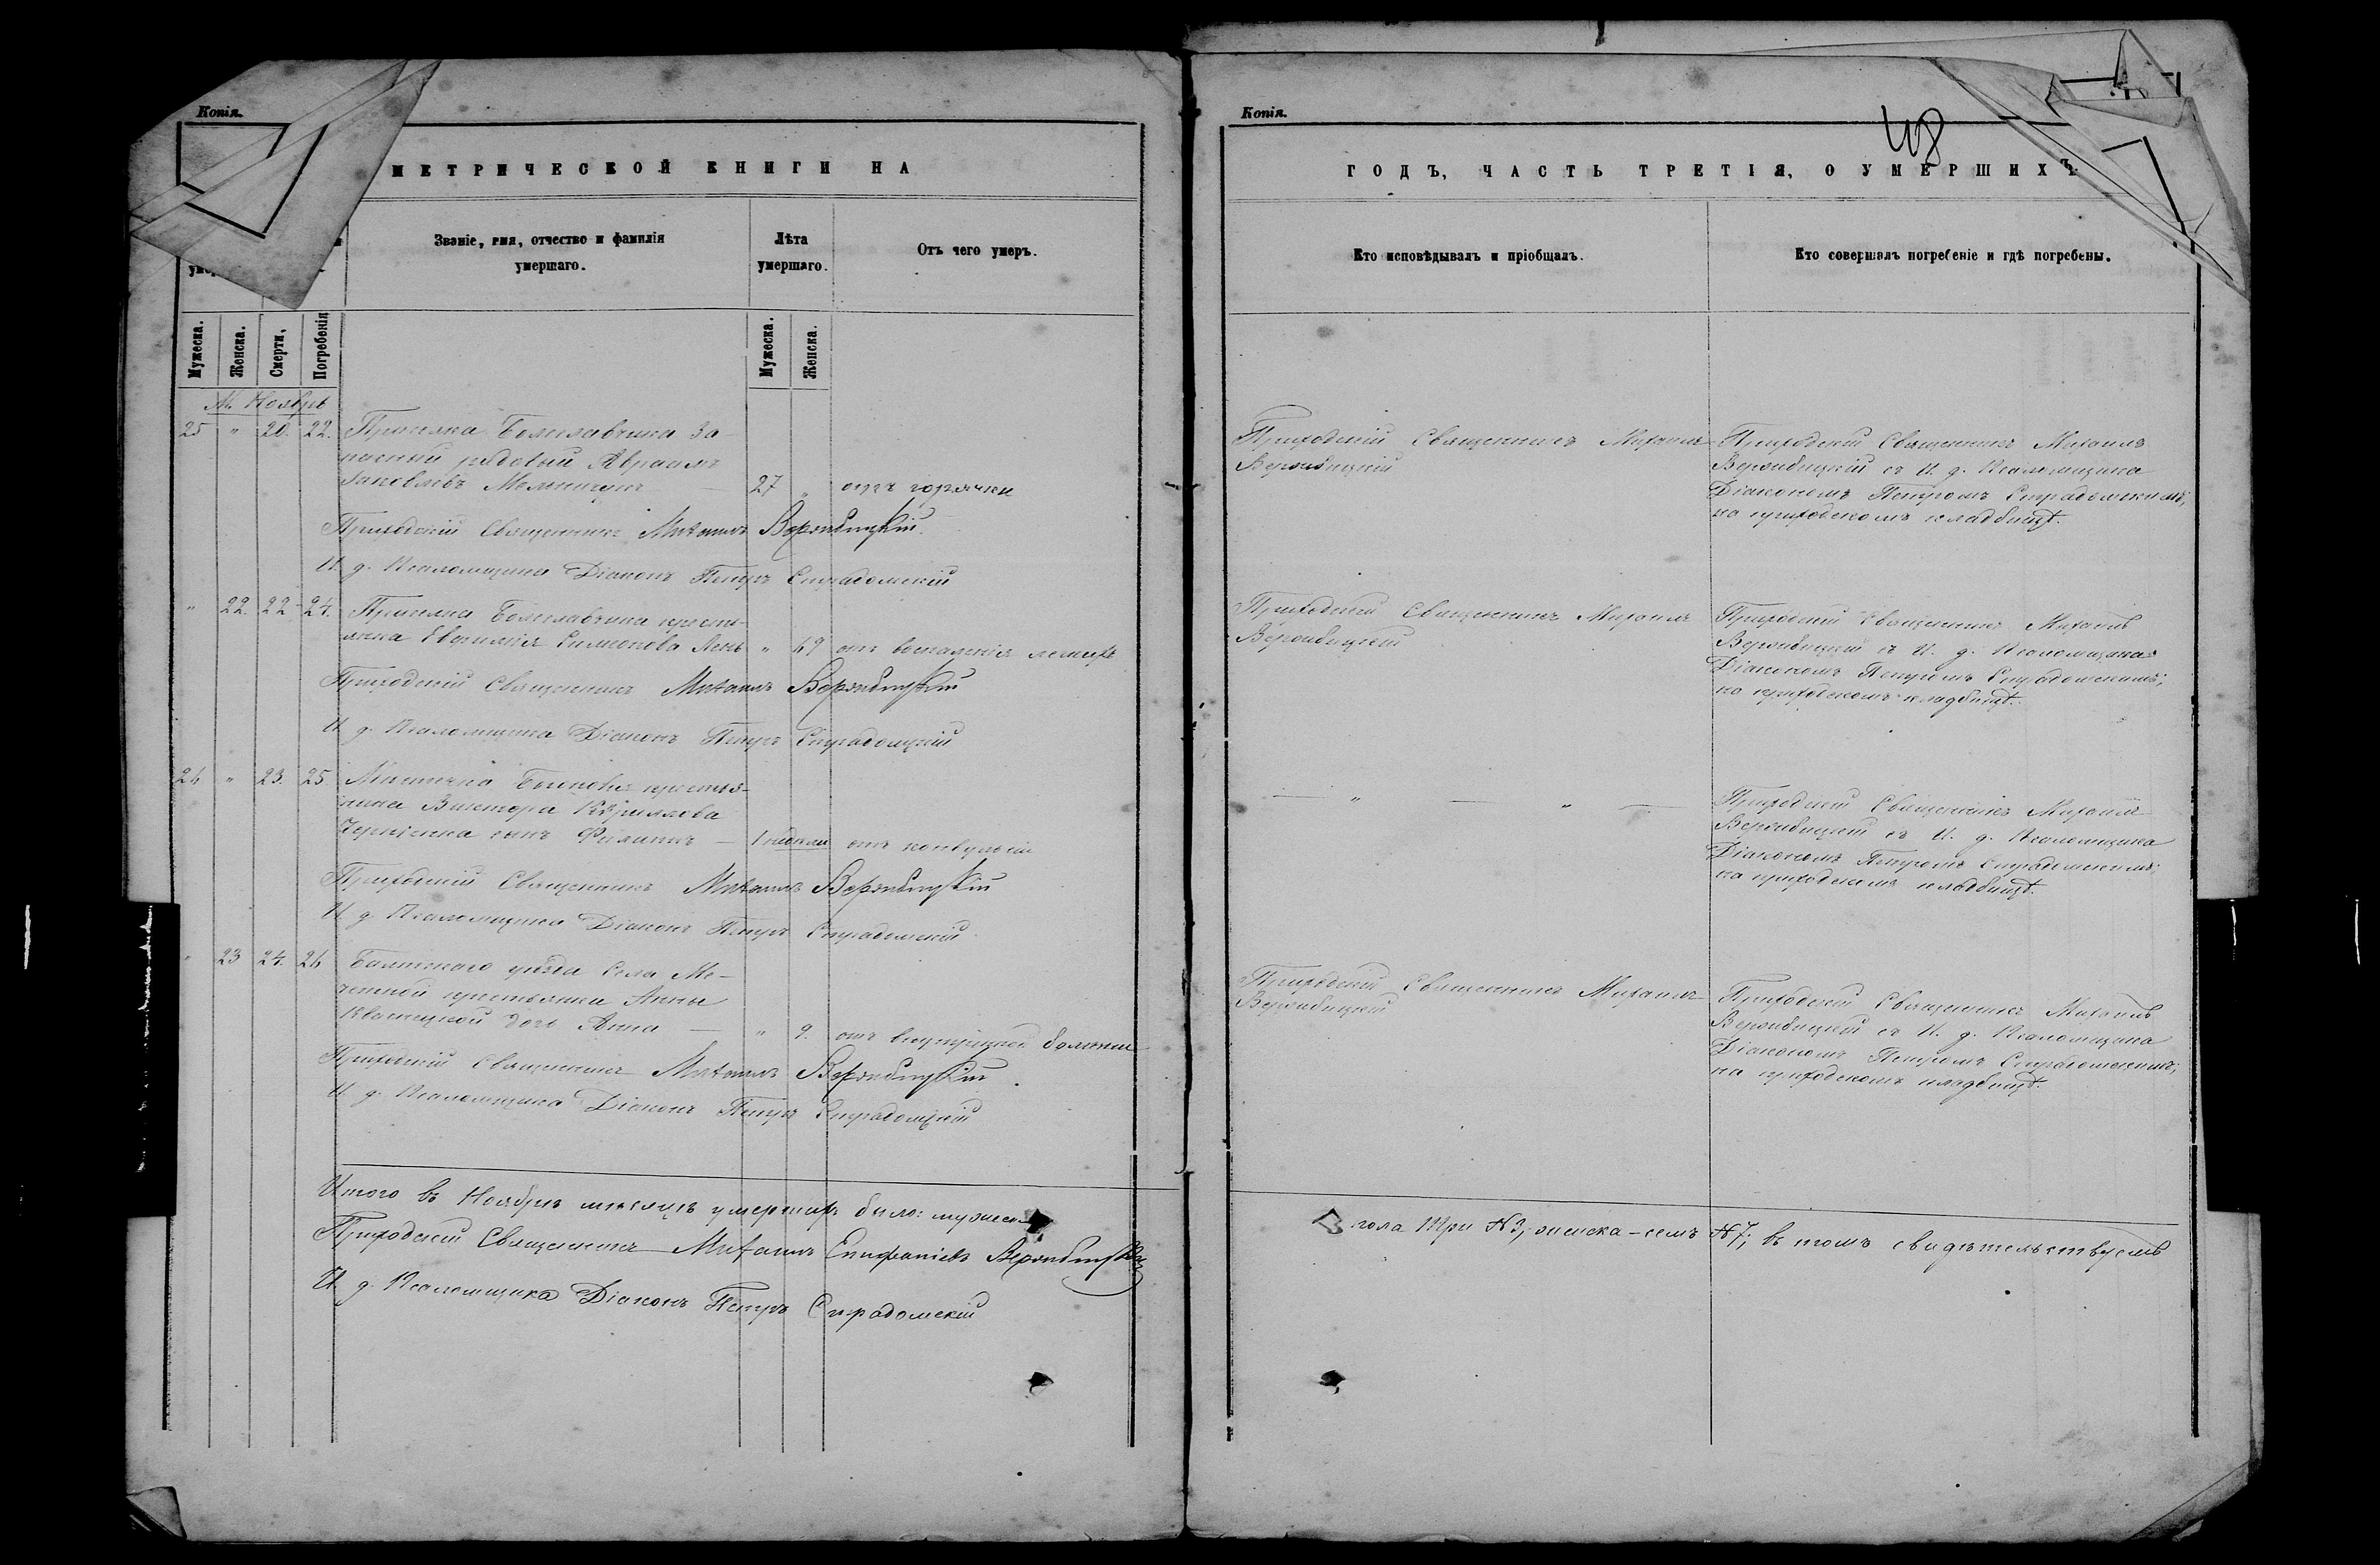 Копія.
МЕТРИЧЕСКОЙ КНИГИ НА
Званіе, имя, отчество и фамилія
умершаго.
Лѣта
умершаго.
Отъ чего умеръ.
Мужеска.
Женска.
Смерти,
Погребенія
Мужеска.
Женска.
М. Ноябрь
25 " 20. 22. Приселка Болеславчика за-
пасный рядовый Авраамъ
Яковлевъ Мельничукъ — 27 " отъ горячки
Приходскій Священникъ Михаилъ Вержбицкій.
И. д. Псаломщика Діаконъ Петръ Спрадомскій
" 22. 22 24. Приселка Болеславчика кресть-
янка Евфимія Симеонова " 69 отъ воспаленія легкихъ
Приходскій Священникъ Михаилъ Вержбицкій
И. д. Псаломщика Діаконъ Петръ Спрадомскій
26 " 23. 25 крестья-
нина Виктора
сынъ Филиппъ — 1 недѣли отъ конвульсіи
Приходскій Священникъ Михаилъ Вержбицкій
И. д. Псаломщика Діаконъ Петръ Спрадомскій
" 23 24. 26 Балтскаго уѣзда села Ме-
четной крестьянки Анны
Квасницкой дочь Анна — " 9. отъ болѣзни
Приходскій Священникъ Михаилъ Вержбицкій.
И. д. Псаломщика Діаконъ Петръ Спрадомскій
Итого въ Ноябрѣ мѣсяцѣ умершихъ было: мужеска
Приходскій Священникъ Михаилъ Епифаніевъ Вержбицкій
И. д. Псаломщика Діаконъ Петръ Спрадомскій
Копія.
48
ГОДЪ, ЧАСТЬ ТРЕТІЯ, О УМЕРШИХЪ
Кто исповѣдывалъ и пріобщалъ.
Кто совершалъ погребеніе и гдѣ погребены.
Приходскій Священникъ Михаилъ
Вержбицкій
Приходскій Священникъ Михаилъ
Вержбицкій съ И. д. Псаломщика
Діакономъ Петромъ Спрадомскимъ;
на приходскомъ кладбищѣ.
Приходскій Священникъ Михаилъ
Вержбицкій
Приходскій Священникъ Михаилъ
Вержбицкій съ И. д. Псаломщика
Діакономъ Петромъ Спрадомскимъ;
на приходскомъ кладбищѣ.
— " — " —
Приходскій Священникъ Михаилъ
Вержбицкій съ И. д. Псаломщика
Діакономъ Петромъ Спрадомскимъ;
на приходскомъ кладбищѣ.
Приходскій Священникъ Михаилъ
Вержбицкій
Приходскій Священникъ Михаилъ
Вержбицкій съ И. д. Псаломщика
Діакономъ Петромъ Спрадомскимъ;
на приходскомъ кладбищѣ.
пола три №3, женска – семь №7; въ томъ свидѣтельствуемъ